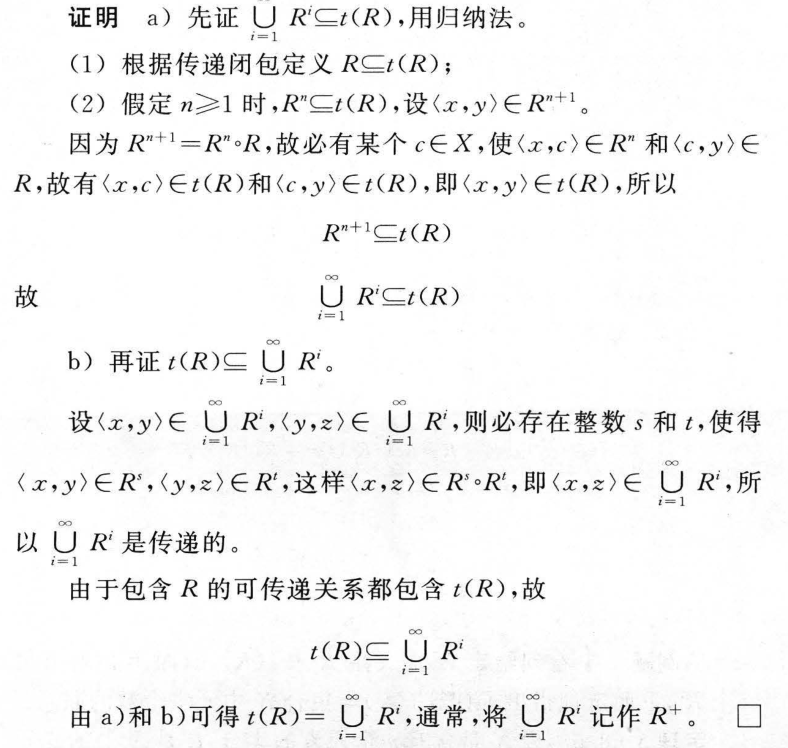 证明 a) 先证 $\bigcup_{i=1}^{\infty} R^i \subseteq t(R)$,用归纳法。
(1) 根据传递闭包定义 $R \subseteq t(R)$;
(2) 假定 $n \geqslant 1$ 时,$R^n \subseteq t(R)$,设$\langle x,y \rangle \in R^{n+1}$。
因为 $R^{n+1} = R^n \circ R$,故必有某个 $c \in X$,使$\langle x,c \rangle \in R^n$ 和$\langle c,y \rangle \in$
$R$,故有$\langle x,c \rangle \in t(R)$和$\langle c,y \rangle \in t(R)$,即$\langle x,y \rangle \in t(R)$,所以
$R^{n+1} \subseteq t(R)$
故 $\bigcup_{i=1}^{\infty} R^i \subseteq t(R)$
b) 再证 $t(R) \subseteq \bigcup_{i=1}^{\infty} R^i$。
设$\langle x,y \rangle \in \bigcup_{i=1}^{\infty} R^i$,$\langle y,z \rangle \in \bigcup_{i=1}^{\infty} R^i$,则必存在整数 $s$ 和 $t$,使得
$\langle x,y \rangle \in R^s$,$\langle y,z \rangle \in R^t$,这样$\langle x,z \rangle \in R^s \circ R^t$,即$\langle x,z \rangle \in \bigcup_{i=1}^{\infty} R^i$,所
以 $\bigcup_{i=1}^{\infty} R^i$ 是传递的。
由于包含 $R$ 的可传递关系都包含 $t(R)$,故
$t(R) \subseteq \bigcup_{i=1}^{\infty} R^i$
由 a)和 b)可得 $t(R) = \bigcup_{i=1}^{\infty} R^i$,通常,将 $\bigcup_{i=1}^{\infty} R^i$ 记作 $R^+$。 □